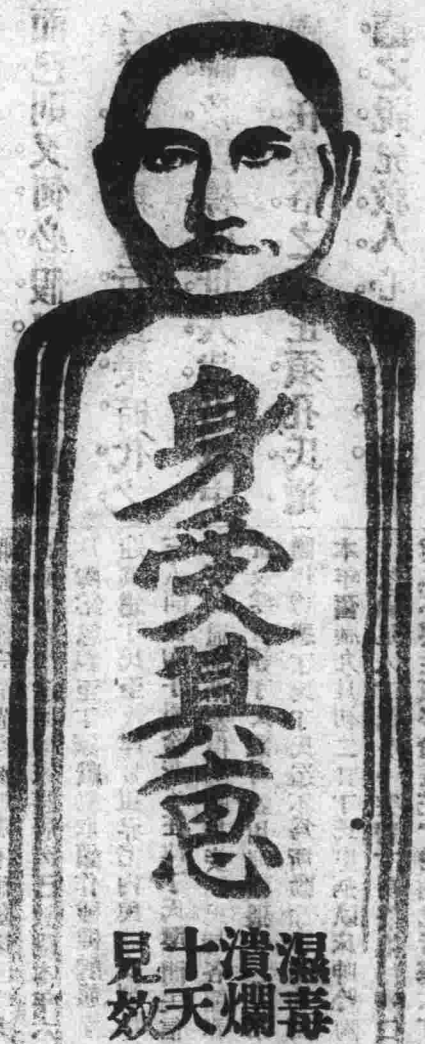 身受其惠
濕毒
潰爛
十天
見效